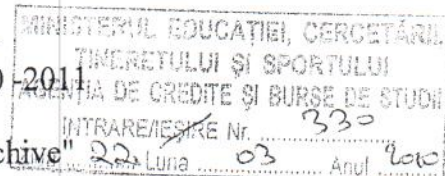 MINISTERUL EDUCAŢIEI, CERCETĂRII
TINERETULUI ŞI SPORTULUI
-2011
AGENŢIA DE CREDITE ŞI BURSE DE STUDII
INTRARE/IEŞIRE Nr. 330
chive" 22 Luna 03 Anul 2010